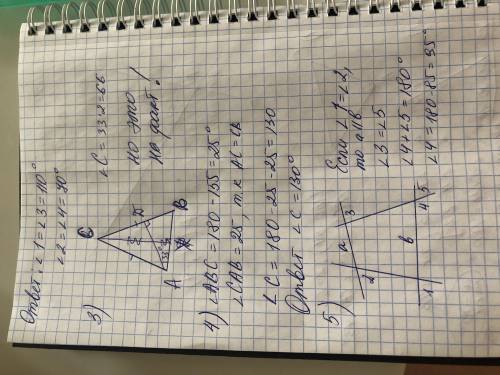 Ответ: ∠1 = ∠3 = 110°
∠2 = ∠4 = 90°
3)
C
A
B
33
∠C = 33·2 = 66
но это
не дано!
4) ∠ABC = 180 - 155 = 25°
∠CAB = 25, т.к AC = CB
∠C = 180 - 25 - 25 = 130
Ответ ∠C = 130°
5)
a
3
2
b
4
5
1
Если ∠1 = ∠2,
то a||b
∠3 = ∠5
∠4 + ∠5 = 180°
∠4 = 180 - 85 = 95°